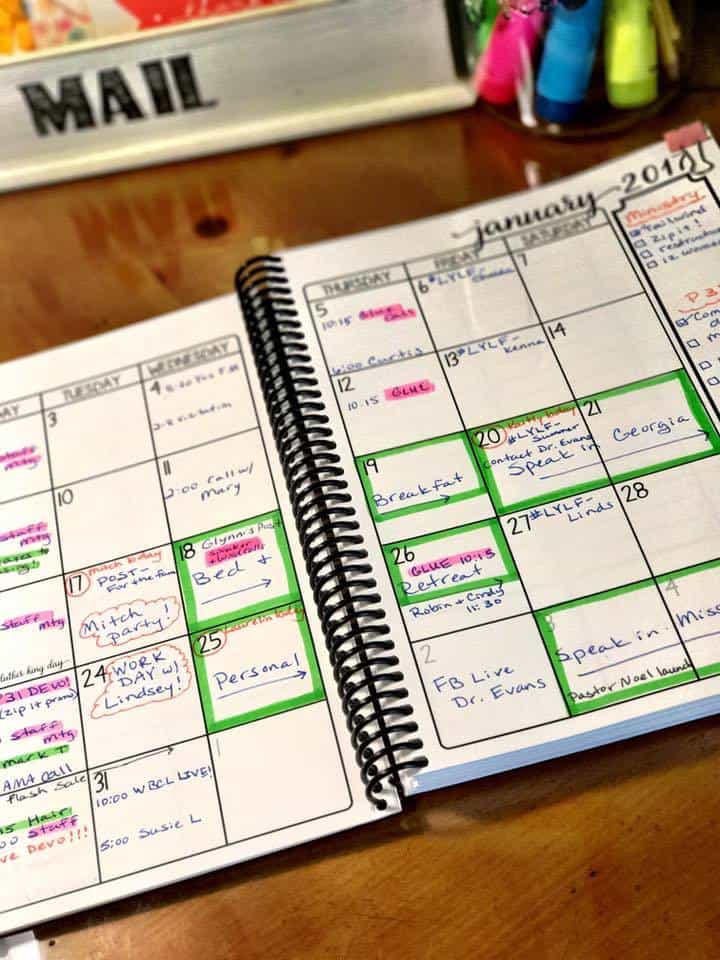 MAIL
TUESDAY
WEDNESDAY
3
4
staff
mtg
10
11
2:00 call w/
Mary
staff
mtg
17
Mitch b'day
POST-
For the fam
Mitch
party!
18
Glynnis Post
speaker
Bed +
staff mtg
luther king day
P31 DEVO!
(zip it promo)
staff
mtg
mark T
AMA call
Flash Sale
24
WORK
DAY w/
Lindsey!
25
Personal
Hair
staff
Devo!!!
31
10:00 WBCL LIVE!
5:00 Susie L
1
january 2017
THURSDAY
FRIDAY
SATURDAY
5
10:15 Glue
Call
6:00 Curtis
6
#LYLF-
7
12
10:15 GLUE
13
#LYLF-
Kenna
14
19
Breakfast
20
#LYLF-
Summer
Contact Dr. Evans
Speak in
21
Georgia
26
GLUE 10:15
Retreat
Robin + Cindy
11:30
27
#LYLF-
Linds
28
2
FB Live
Dr. Evans
3
Speak in
Pastor Noel launch
4
Ministry
tailwind
zip it!
P3